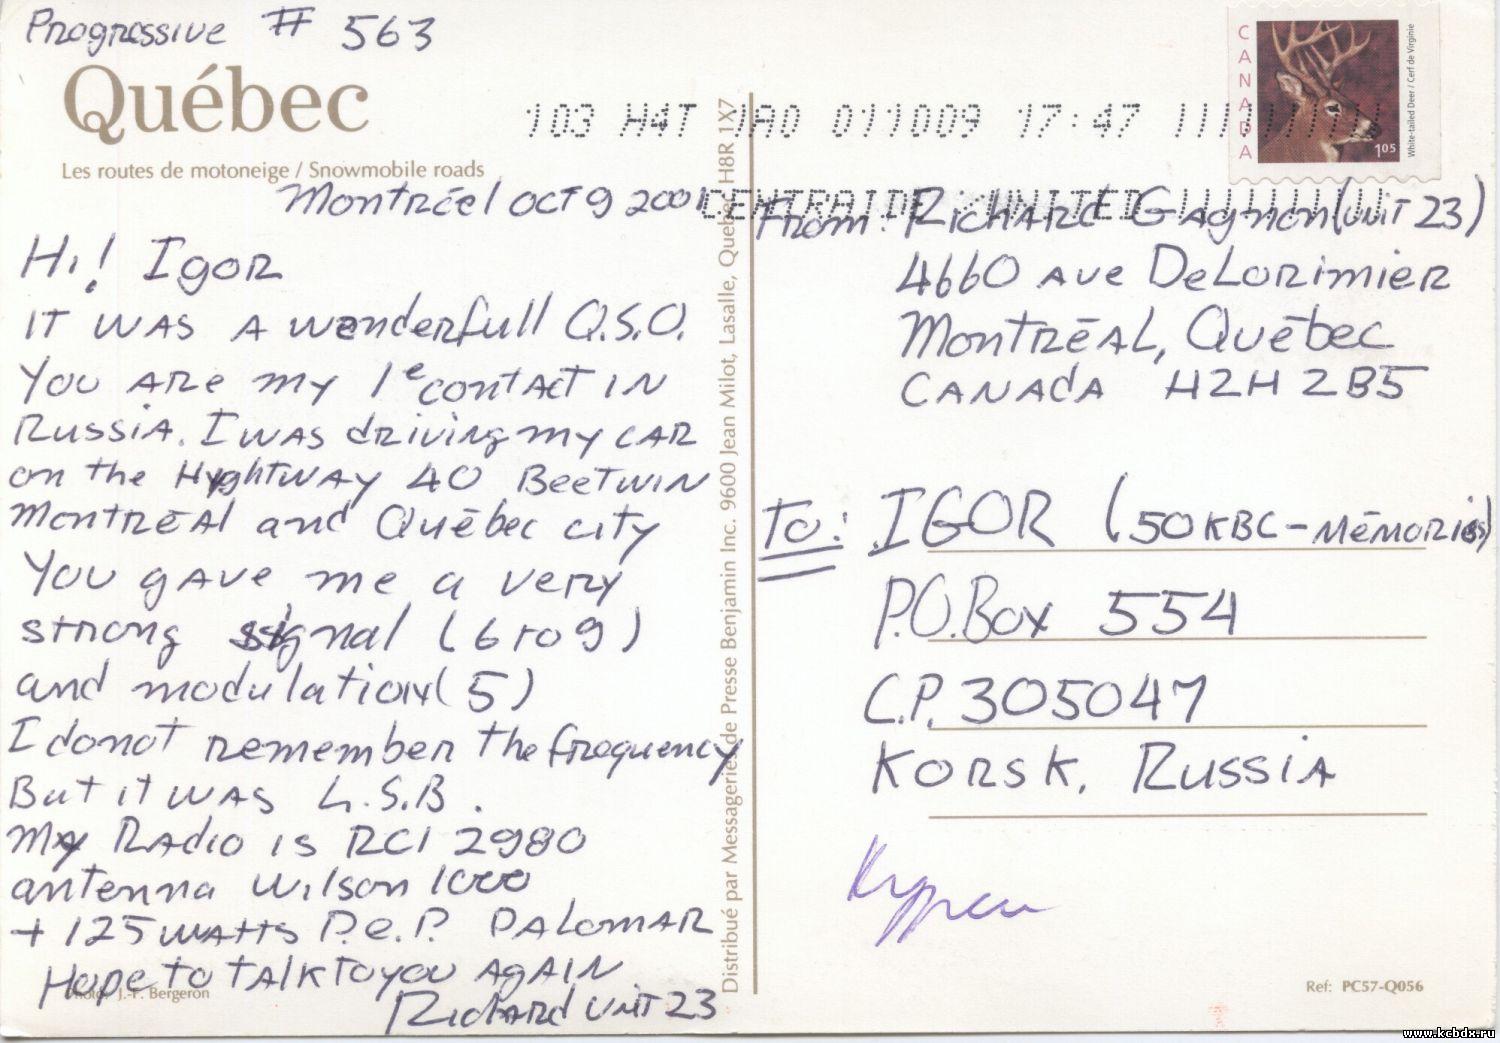 Progressive # 563
Québec
Les routes de motoneige / Snowmobile roads
Montréel oct 9 2001
Hi! Igor
IT WAS A wenderfull Q.S.O.
You are my 1e contact in
Russia. I was driving my car
on the Hyghtway 40 Beetwin
Montréal and Québec city
You gave me a very
strong signal (6 to 9)
and modulation (5)
I donot remember the frequency
But it was L.S.B.
My Radio is RCI 2980
antenna Wilson 1000
+ 125 watts P.e.P. Palomar
Hope to talk to you again
Photo: J.-F. Bergeron
Richard unit 23
Distribué par Messageries de Presse Benjamin Inc. 9600 Jean Milot, Lasalle, Quebec H8R 1X7
103 H4T 1A0 011009 17:47
CENTRAIDE / UNITED
CANADA
White-tailed Deer / Cerf de Virginie
1.05
From: Richard Gagnon (unit 23)
4660 ave DeLorimier
Montréal, Québec
Canada H2H 2B5
To: IGOR (50KBC-Mémories)
P.O.Box 554
C.P. 305047
Korsk, Russia
Курск
Ref: PC57-Q056
www.kcbdx.ru